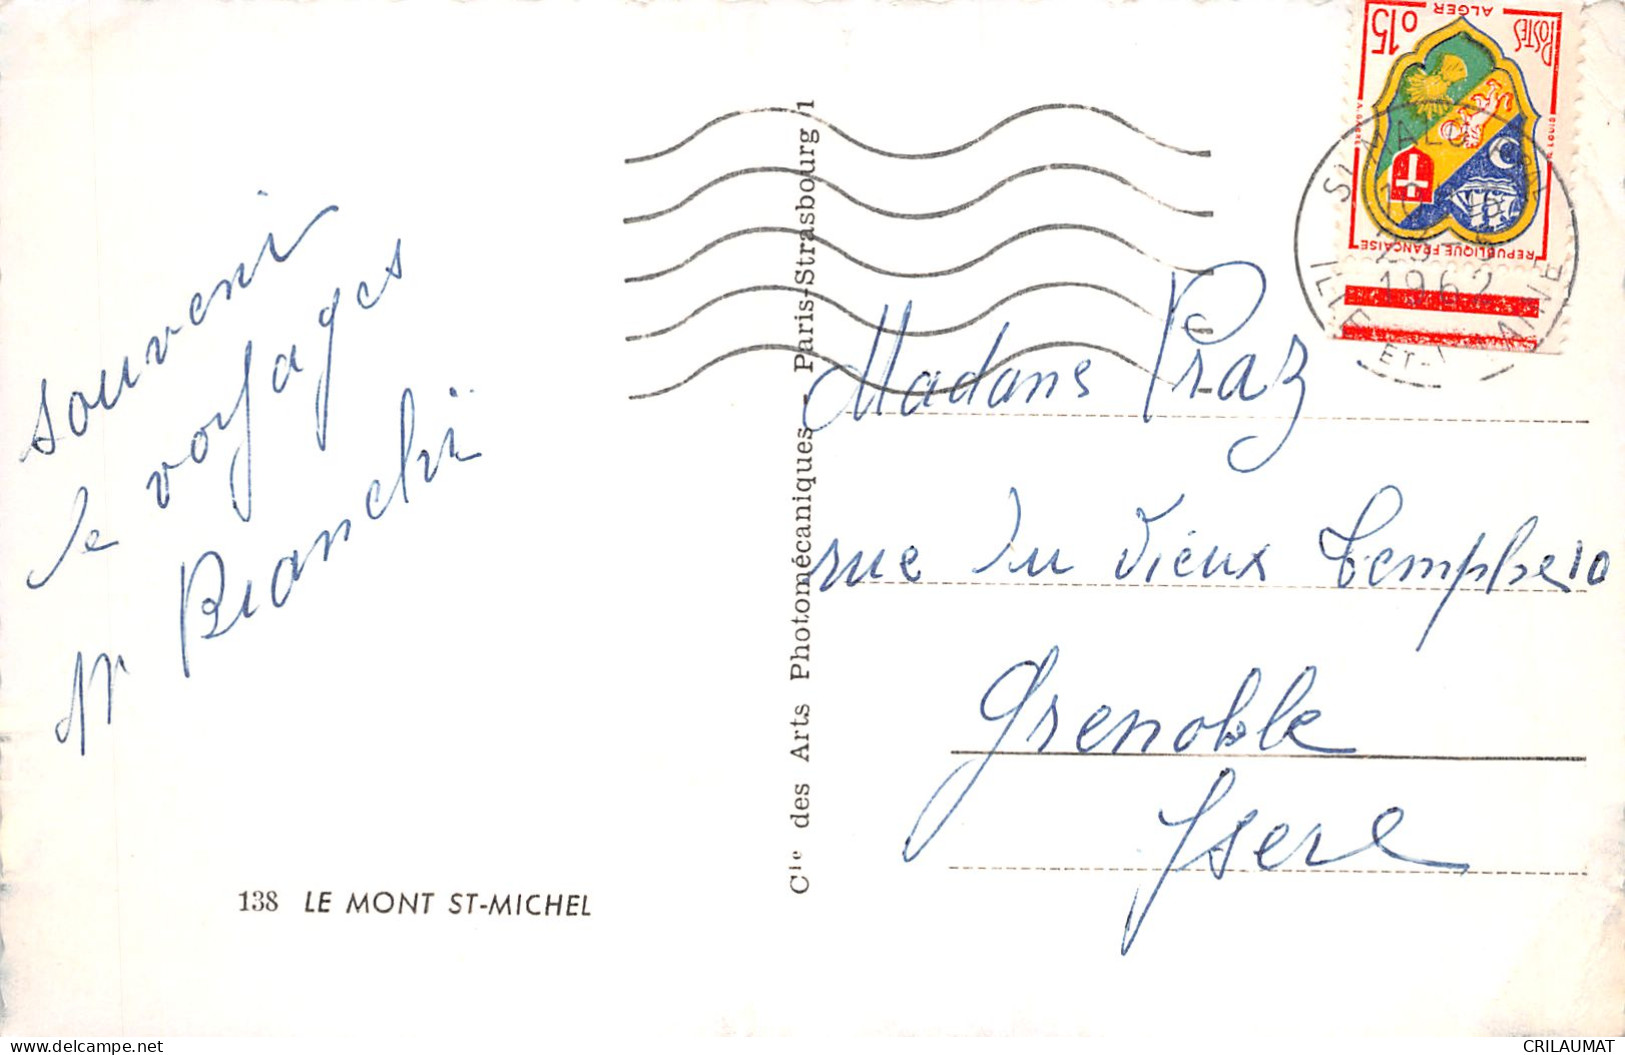 souveni
le voyages
Mr Bianchi
138 LE MONT ST-MICHEL
Cie des Arts Photomécaniques - Paris-Strasbourg /1
POSTES 0,15
ALGER
REPUBLIQUE FRANÇAISE
ST MALO
1962
ILLE ET-
Madame Praz
rue du Vieux Temple 10
Grenoble
Isere
CRILAUMAT